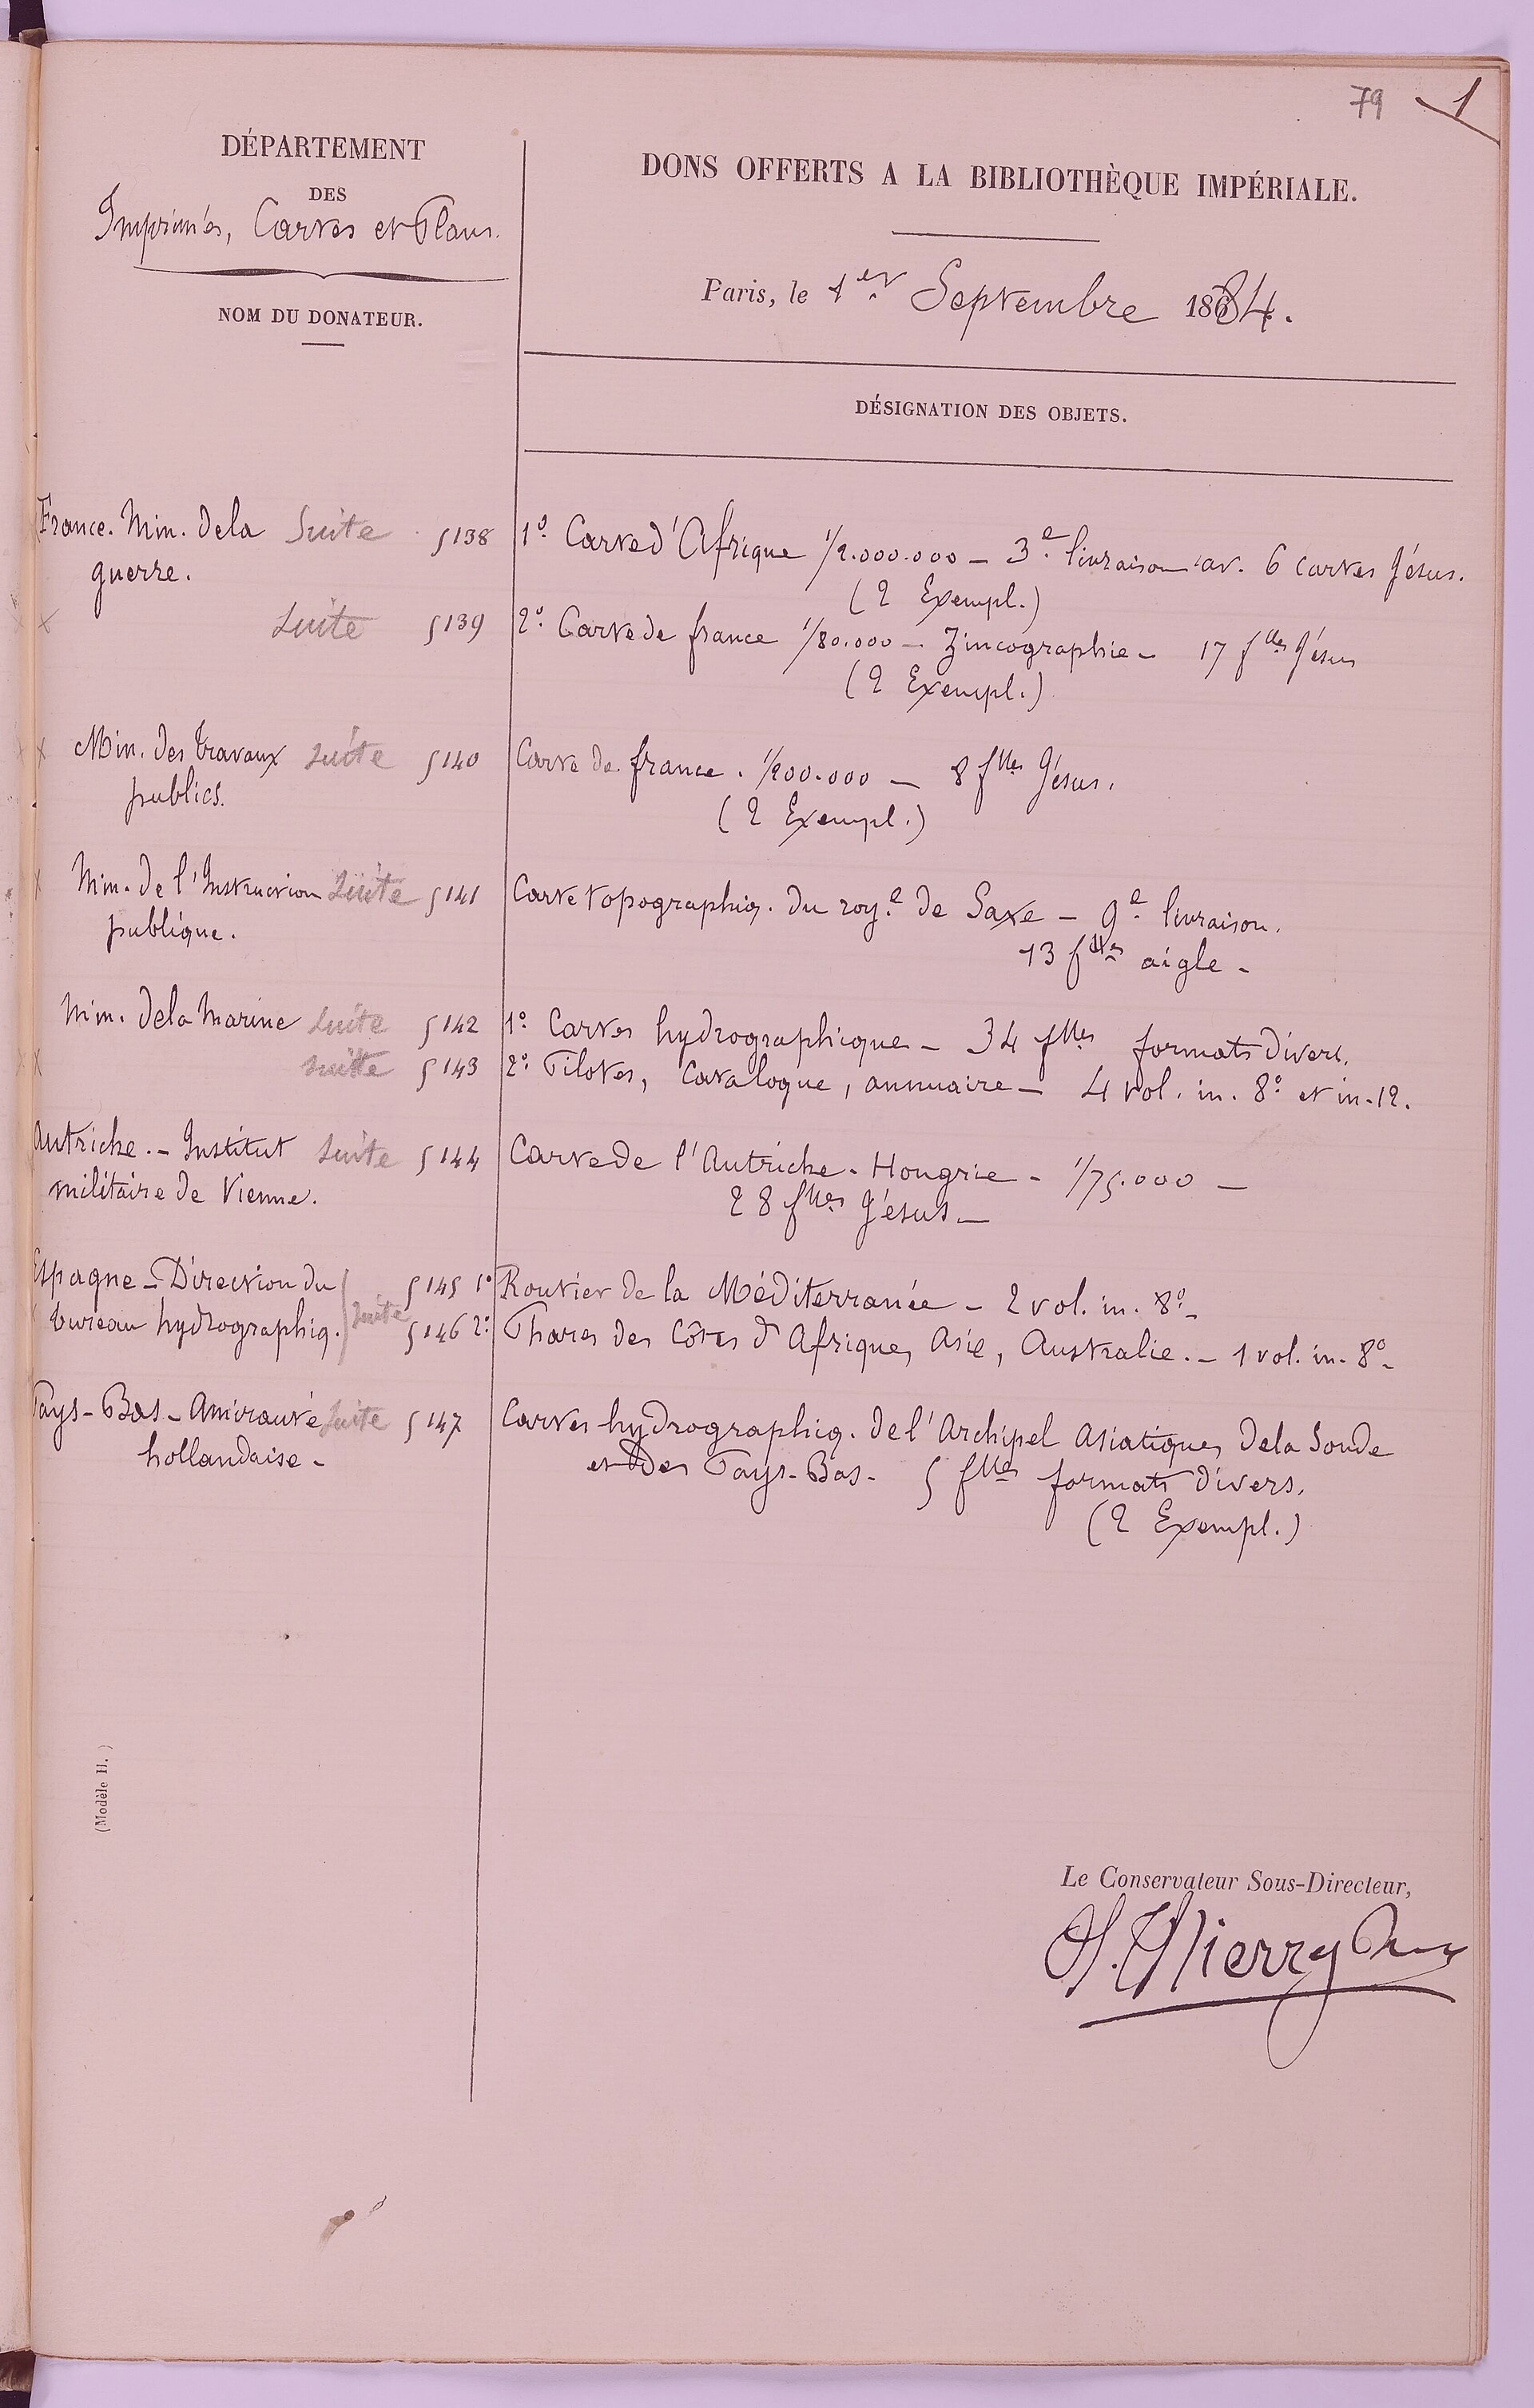 79 1
DÉPARTEMENT
DES
Imprimés, Cartes et Plans.
NOM DU DONATEUR.
DONS OFFERTS A LA BIBLIOTHÈQUE IMPÉRIALE.
Paris, le 1er Septembre 1884.
DÉSIGNATION DES OBJETS.
France. Min. de la Suite 5138 1º Carte d'Afrique 1/2.000.000 — 3e livraison av. 6 cartes Jésus.
guerre. (2 Exempl.)
Suite 5139 2º Carte de france 1/80.000 — Zincographie — 17 flles Jésus
(2 Exempl.)
Min. des travaux Suite 5140 Carte de france. 1/200.000 — 8 flles Jésus.
publics. (2 Exempl.)
Min. de l'Instruction Suite 5141 Carte topographiq. du roy.e de Saxe — 9e livraison.
publique. 13 flles aigle —
Min. de la Marine Suite 5142 1º Cartes hydrographique — 34 flles formats divers.
suite 5143 2º Pilotes, Catalogue, annuaire — 4 vol. in. 8º et in-12.
Autriche. — Institut Suite 5144 Carte de l'Autriche-Hongrie — 1/75.000 —
militaire de Vienne. 28 flles Jésus —
Espagne — Direction du 5145 1º Routier de la Méditerranée — 2 vol. in. 8º —
bureau hydrographiq. Suite 5146 2º Phares des Côtes d'Afrique, Asie, Australie. — 1 vol. in. 8º —
Pays-Bas — Amirauté Suite 5147 Cartes hydrographiq. de l'Archipel Asiatique, de la Sonde
hollandaise — et des Pays-Bas — 5 flles formats divers.
(2 Exempl.)
(Modèle H.)
Le Conservateur Sous-Directeur,
H. Thierry